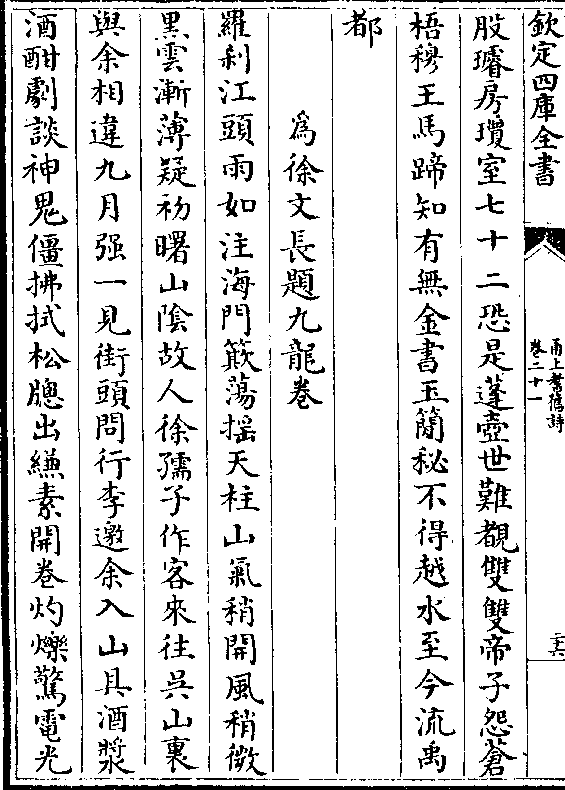 欽定四庫全書
甬上耆舊詩
卷二十一
二十六
股璿房瓊室七十二恐是蓬壺世難覩雙雙帝子怨蒼
梧穆王馬蹄知有無金書玉簡秘不得越水至今流禹
都
為徐文長題九龍卷
羅刹江頭雨如注海門簸蕩揺天柱山氣稍開風稍微
黒雲漸薄疑初曙山隂故人徐孺子作客來往吳山裏
與余相違九月强一見街頭問行李邀余入山具酒漿
酒酣劇談神鬼僵拂拭松牕出縑素開卷灼爍驚電光